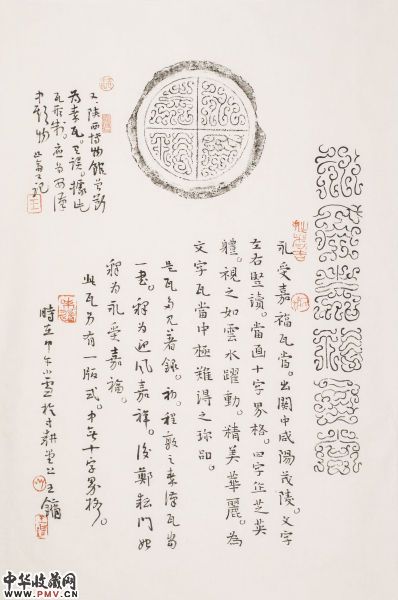 永受嘉福瓦當
永受嘉福瓦當。出関中咸陽茂陵。文字
左右豎讀。當面十字界格。四字作芝英
體。視之如雲水躍動。精美華麗。為
文字瓦當中極難得之珍品。
是瓦多見著錄。初程敦之秦漢瓦當
一書。釋為迎風嘉祥。後鄭耘門始
釋為永受嘉福。
此瓦另有一版式。中無十字界格。
時在甲午小雪於寸耕堂 王鏞
又陝西博物館曾斷
為秦瓦。誤。據此
瓦形制。應為西漢
中期物 又記
中华收藏网
www.PMV.CN